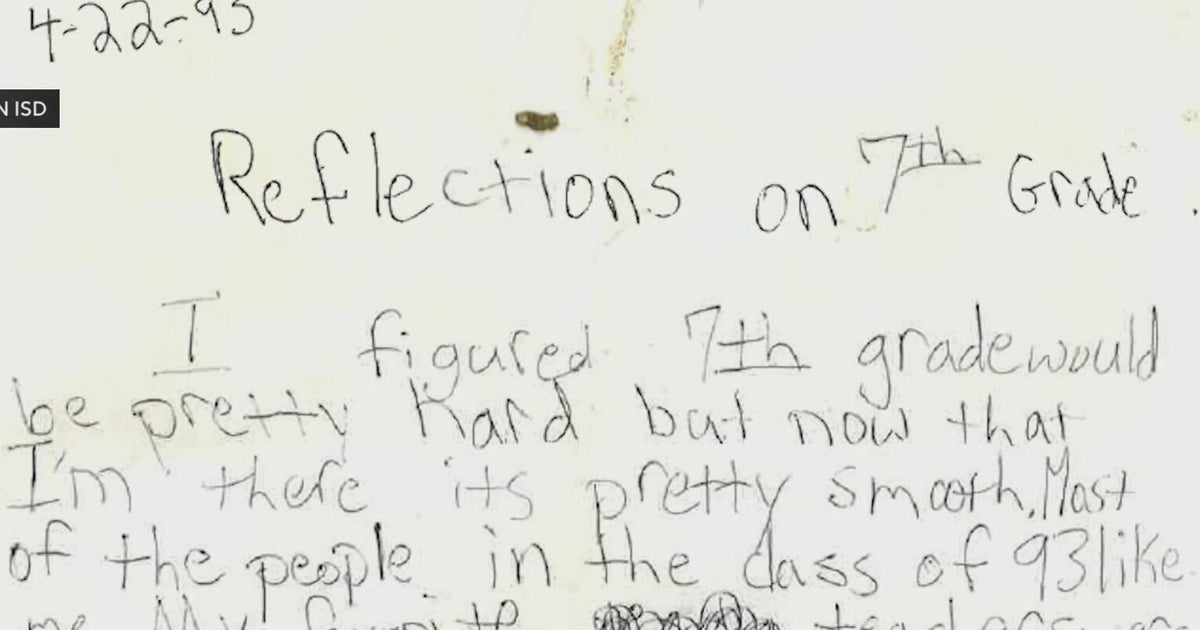 4-22-93
N ISD
Reflections on 7th Grade.
I figured 7th grade would
be pretty hard but now that
I'm there its pretty smooth. Most
of the people in the class of 93 like
me My teachers are